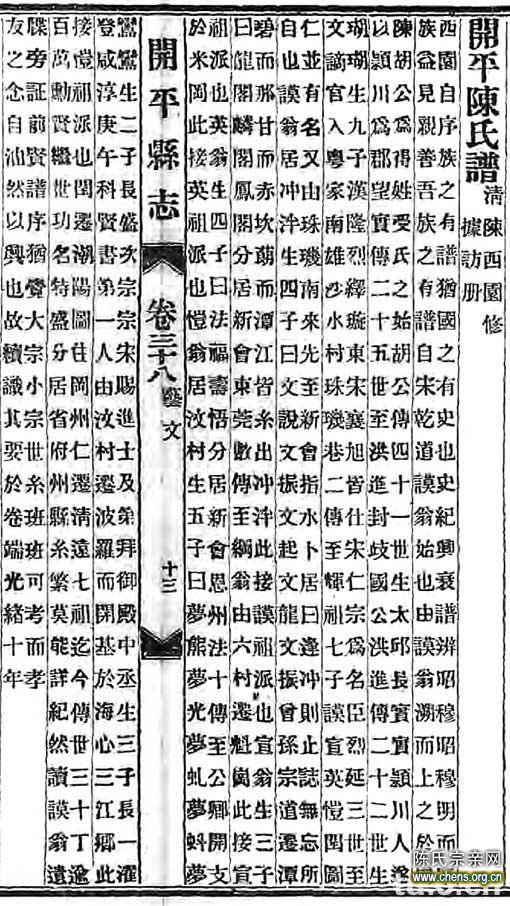 開平陳氏譜 清陳西園修
據訪册
西園自序族之有譜猶國之有史也史紀興衰譜辨昭穆昭穆明而
族益見親善吾族之有譜自宋乾道謨翁始也由謨翁溯而上之於
陳胡公爲得姓受氏之始胡公傳四十一世生太邱長實實潁川人遂
以潁川爲郡望實傳二十五世至洪進封岐國公洪進傳二十二世生
瑚瑚生九子漢隆烈繹璇東宋襄旭皆仕宋仁宗爲名臣烈延三世至
文謫官入粵家南雄沙水村珠璣巷二傳至輝祖七子謨宣英愷閏圖
仁並有名又由珠璣南來先至新會指水卜居曰逢冲則止誌無忘所
自也謨翁居冲泮生四子曰文說文振文起文龍文振曾孫宗道遷潭
碧而那甘而赤坎蓢而潭江皆系出冲泮此接謨祖派也宣翁生三子
曰龍閣麟閣鳳閣分居新會東莞數傳至綱翁由六村遷魁岡此接宣
祖派也英翁生四子曰法福壽悟分居新會恩州法十傳至公卿開支
於米岡此接英祖派也愷翁居汶村生五子曰夢熊夢光夢虬夢蚪夢
開平縣志 卷三十八 藝文 十三
鸞鸞生二子長盛次宗宗宋賜進士及第拜御殿中丞生三子長一濯
登咸淳庚午科賢書第一人由汶村遷波羅而開基於海心三江鄉此
接愷祖派也閏遷潮陽圖往岡州仁遷清遠七祖迄今傳世三十丁逾
百萬勳賢繼世功名特盛分居省府州縣系繁莫能詳紀然讀謨翁遺
牒旁証前賢譜序猶覺大宗小宗世系班班可考而孝
友之念自油然以興也故續識其要於卷端光緒十年
陈氏宗亲网
www.chens.org.cn